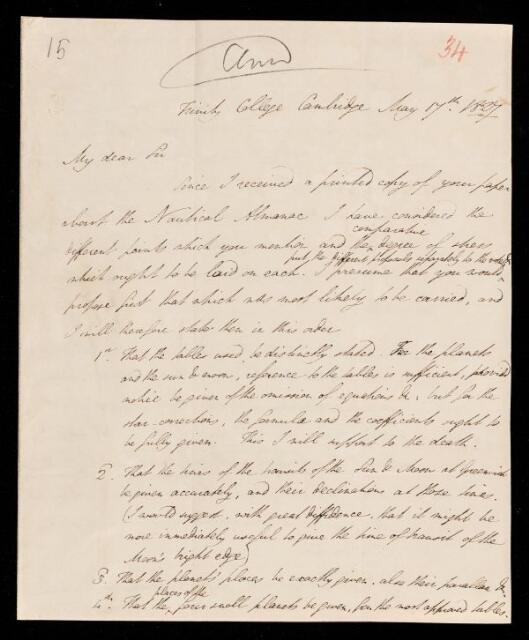 15
34
Trinity College Cambridge May 17th 1827
My dear Sir
Since I received a printed copy of your paper
about the Nautical Almanac I have considered the
comparative
different points which you mention and the degree of stress
put the different proposals separately to the
which ought to be laid on each. I presume that you would
propose first that which was most likely to be carried, and
I will therefore state them in this order
1st. That the tables used be distinctly stated. For the planets
and the sun & moon, reference to the tables is sufficient, provided
notice be given of the omission of equations &c, but for the
star-corrections, the formulæ and the coefficients ought to
be fully given. This I will support to the death.
2. That the times of the transits of the Sun & Moon at Greenwich
be given accurately, and their declinations at those times.
(I would suggest, with great diffidence, that it might be
more immediately useful to give the time of transit of the
Moon's bright edge)
3. That the planets' places be exactly given, also their parallax &c.
places of the
4th. That the four small planets be given, from the most approved tables.